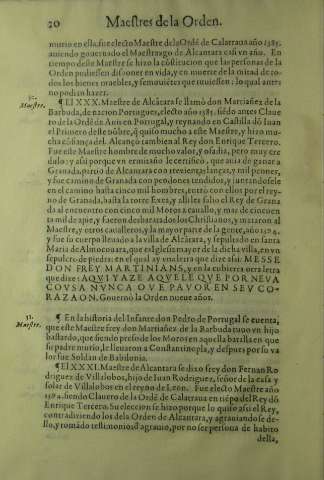 20 Maestres de la Orden.
murio en ella, fue electo Maestre de la Ordẽ de Calatraua año 1385.
auiendo gouernado el Maestrazgo de Alcantara casi vn año. En
tiempo deste Maestre se hizo la costitucion que las personas de la
Orden pudiessen disponer en vida, y en muerte de la mitad de to-
dos los bienes muebles, y semouiẽtes que tuuiessen: lo qual antes
no podiã hazer.
Maestre.
¶ El XXX. Maestre de Alcãtara se llamò don Martiañez de la
Barbuda, de nacion Portugues, electo año 1385. siẽdo antes Claue
ro de la Ordẽ de Auis en Portugal, y reynando en Castilla dõ Iuan
el Primero deste nõbre, q̃ quiso mucho a este Maestre, y hizo mu-
cha cõfiança del. Alcançò tambien al Rey don Enrique Tercero.
Fue este Maestre hombre de mucho valor, y osadia, pero muy cre
dulo: y assi porque vn ermitaño le certificò, que auia de ganar a
Granada, partio de Alcantara con trezientas lanças, y mil peones,
y fue camino de Granada con pendones tendidos, y juntandosele
en el camino hasta cinco mil hombres, entrò con ellos por el rey-
no de Granada, hasta la torre Exea, y alli les salio el Rey de Grana
da al encuentro con cinco mil Moros a cauallo, y mas de cincuen
ta mil de a pie, y fueron desbaratados los Christianos, y mataron al
Maestre, y otros caualleros, y la mayor parte de la gente, año 1394.
y fue su cuerpo lleuado a la villa de Alcãtara, y sepultado en santa
Maria de Almocouara, que es Iglesia mayor de la dicha villa, en vn
sepulcro de piedra: en el qual ay vna letra que dize assi: MESSE
DON FREY MARTINIANS, y en la cubierta otra letra
que dize: AQVI YAZE AQVELE QVE POR NEVA
COVSA NVNCA OVE PAVOR EN SEV CO-
RAZAON. Gouernò la Orden nueue años.
31.
Maestre.
¶ En la historia del Infante don Pedro de Portugal se cuenta,
que este Maestre frey don Martiañez de la Barbuda tuuo vn hijo
bastardo, que siendo preso de los Moros en aquella batalla en que
su padre murio, le lleuaron a Constantinopla, y despues por su va
lor fue Soldan de Babilonia.
¶ El XXXI. Maestre de Alcantara se dixo frey don Fernan Ro
driguez de Villalobos, hijo de Iuan Rodriguez, señor de la casa y
solar de Villalobos en el reyno de Leon. Fue electo Maestre año
1394. siendo Clauero de la Ordẽ de Calatraua en tiẽpo del Rey dõ
Enrique Tercero. Su eleccion se hizo porque lo quiso assi el Rey,
contradiziendo los de la Orden de Alcantara, y agrauiandose de-
llo, y tomãdo testimonio del agrauio, por no ser persona de habito
della,